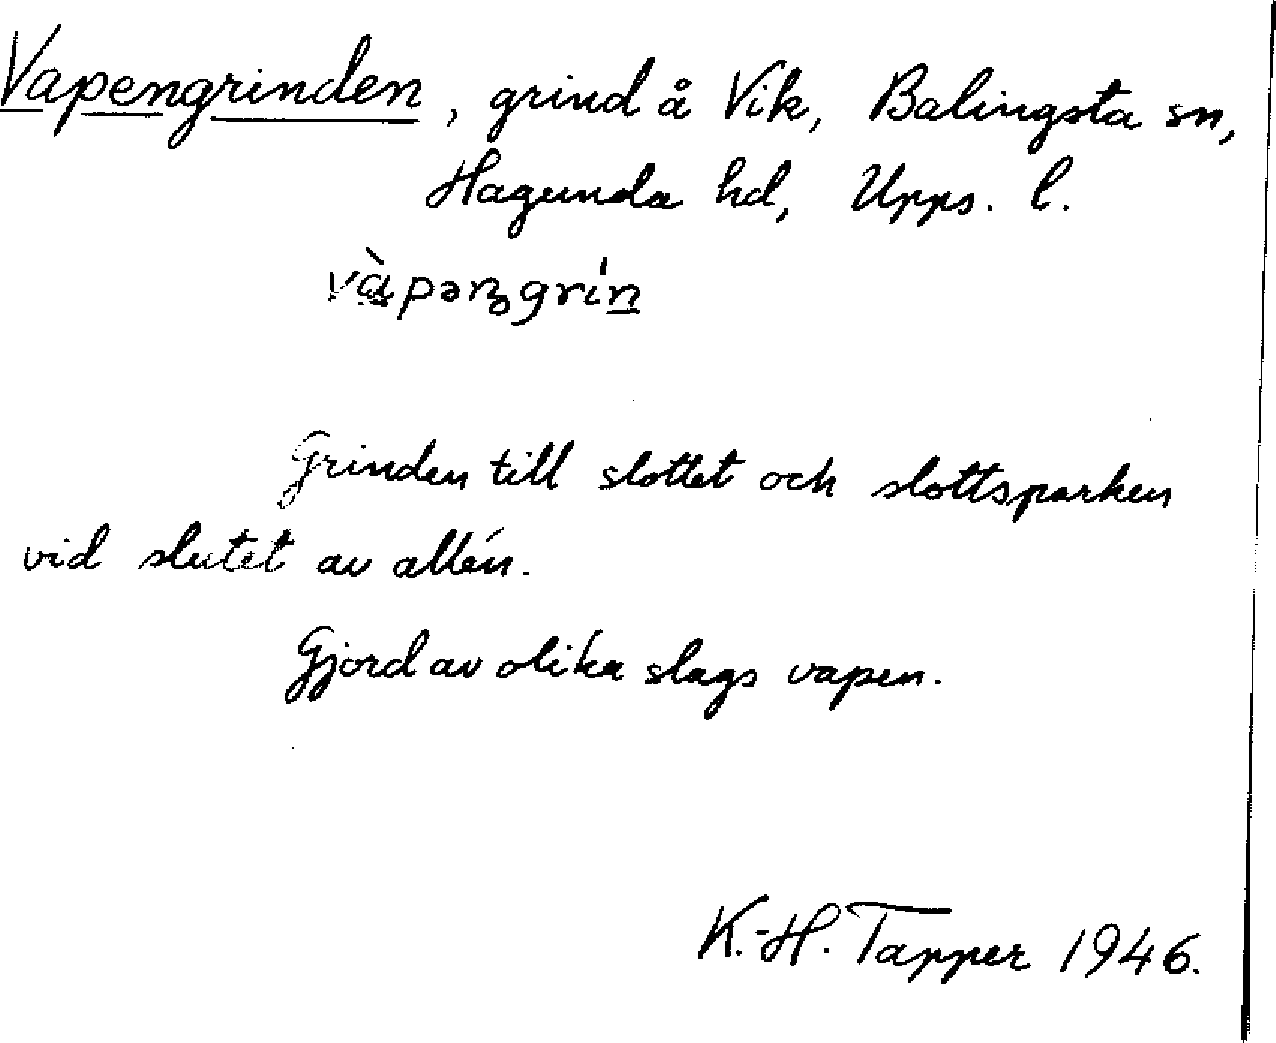 Vapengrinden, grind å Vik, Balingsta sn,
Hagunda hd, Upps. l.
vàpəngrín
Grinden till slottet och slottsparken
vid slutet av allén.
Gjord av olika slags vapen.
K.-H. Tapper 1946.